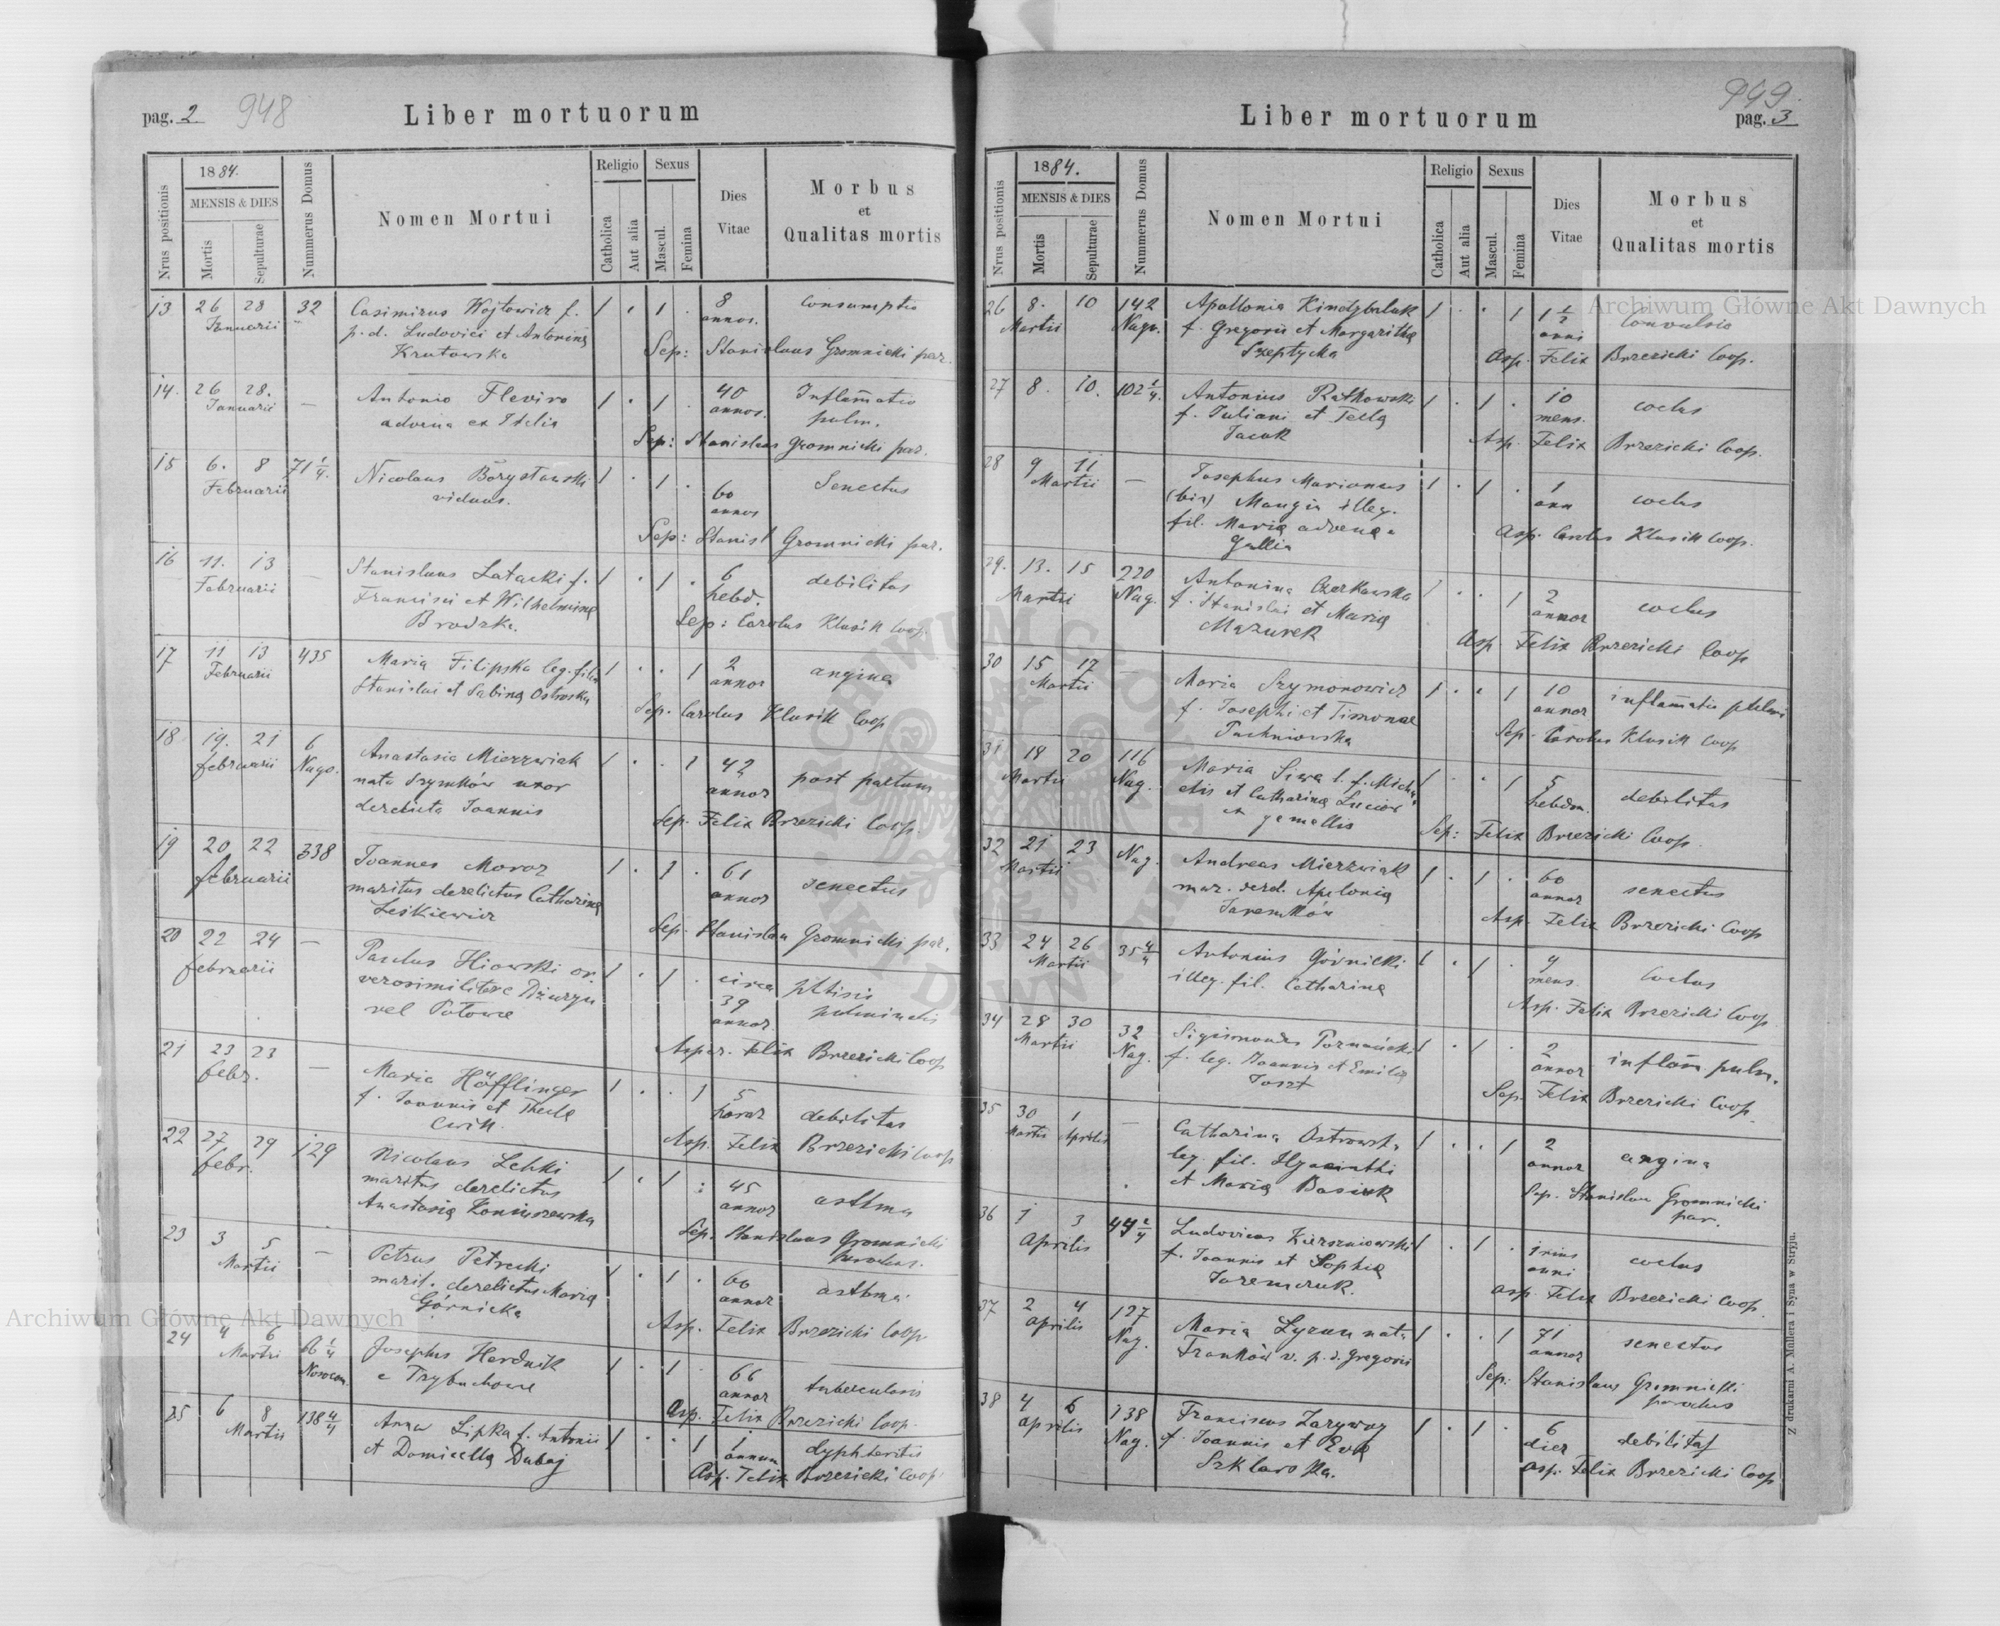 pag. 2 948
Liber mortuorum
Nrus positionis
1884.
MENSIS & DIES
Mortis
Sepulturae
Nummerus Domus
Nomen Mortui
Religio
Catholica
Aut alia
Sexus
Mascul.
Femina
Dies
Vitae
Morbus
et
Qualitas mortis
13 26 28 32 Casimirus Wojtowicz f. 1 . 1 . 8 consumptio
Januarii p. d. Ludovici et Antonina annor.
Krutowska Sep: Stanislaus Gromnicki par.
14. 26 28. — Antonio Fleviro 1 . 1 . 40 Inflamatio
Januarii advena ex Italia annor. pulm.
Sep: Stanislaus Gromnicki par.
15 6. 8 71 1/4. Nicolaus Borysławski 1 . 1 . 60 Senectus
Februarii viduus. annor
Sep: Stanisl Gromnicki par.
16 11. 13 Stanislaus Latacki f. 1 . 1 . 6 debilitas
Februarii Francisci et Wilhelmina hebd.
Brodzka. Sep: Carolus Klusik Coop.
17 11 13 435 Maria Filipska leg. filia 1 . . 1 2 angina
Februarii Stanislai et Sabina Ostroska annor
Sep. Carolus Klusik Coop
18 19. 21 6 Anastasia Mierzwiak 1 . . 1 42 post partum
februarii Nago. nata Szymków uxor annor
derelicta Joannis Sep. Felix Brzezicki Coop.
19 20 22 338 Joannes Moroz 1 . 1 . 61 senectus
februarii maritus derelictus Catharina annor
Leśkiewicz Sep. Stanislau Gromnicki par.
20 22 24 — Paulus Hiowski or. 1 . 1 . circa phtisis
februarii verosimilitere Dżuryn 39 pulminalis
vel Potowce annor
Asper. Felix Brzezicki Coop
21 23 23 — Maria Höfflinger 1 . . 1 5 debilitas
febr. f. Joannis et Thecla horar
Ćwik. Asp. Felix Brzezicki Coop
22 27 29 129 Nicolaus Lebki 1 . 1 . 45 asthma
febr. maritus derelictus annor
Anastasia Koniuszewska Sep. Stanislaus Gromnicki
parochus.
23 3 5 — Petrus Petrecki 1 . 1 . 60 asthma
Martii marit. derelictus Maria annor
Górnicka Asp. Felix Brzezicki Coop
24 4 6 66 1/4 Josephus Herdnik 1 . 1 . 66 tuberculosis
Martii Nosocom. e Trybuchowce annor
Asp. Felix Brzezicki Coop.
25 6 8 138 4/4 Anna Lipka f. Antonii 1 . . 1 1 dyphteritis
Martii et Domicella Dubaj annum
Asp. Felix Brzezicki Coop.
949.
Liber mortuorum
pag. 3
Nrus positionis
1884.
MENSIS & DIES
Mortis
Sepulturae
Nummerus Domus
Nomen Mortui
Religio
Catholica
Aut alia
Sexus
Mascul.
Femina
Dies
Vitae
Morbus
et
Qualitas mortis
26 8. 10 142 Apollonia 1 . . 1 1 1/2 Convulsio
Martii Nago. f. Gregorii et Margaritha anni
Szeptycka Asp. Felix Brzezicki Coop.
27 8. 10. 102 1/4. Antonius Ratkowski 1 . 1 . 10 coctus
f. Juliani et Tecla mens.
Jacak Asp. Felix Brzezicki Coop.
28 9 11 — Josephus Marionus 1 . 1 . 1 coctus
Martii (bin) Maugin illeg. ann
fil. Maria advena e Asp. Carolus Klusik Coop.
Gallia
29. 13. 15 220 Antonina Czerkawska 1 . . 1 2 coctus
Martii Nag. f. Stanislai et Maria annor
Mazurek Asp. Felix Brzezicki Coop
30 15 17 — Maria Szymonowicz 1 . . 1 10 inflamatio
Martii f. Josephi et Simonae annor
Puchniowska Sep. Carolus Klusik Coop
31 18 20 116 Maria Siwa l. f. Micha- 1 . . 1 5 debilitas
Martii Nag. elis et Catharina hebdom.
gemellis Sep: Felix Brzezicki Coop.
32 21 23 Nag. Andreas Mierzwiak 1 . 1 . 60 senectus
Martii mar. derel. Apolonia annor
Jaremków Asp. Felix Brzezicki Coop
33 24 26 35 4/4 Antonius Górnicki 1 . 1 . 9 Coctus
Martii illeg. fil. Catharina mens.
Asp. Felix Brzezicki Coop.
34 28 30 32 Sigismondus Poznański 1 . 1 . 2 inflam. pulm.
Martii Nag. f. leg. Joannis et Emilia annor
Joszt Sep. Felix Brzezicki Coop.
35 30 1 — Catharina Ostrowsk 1 . . 1 2 angina
Martii Aprilis leg. fil. Hyacinthi annor
et Maria Basiuk Sep. Stanislau Gromnicki
par.
36 1 3 44 2/4 Ludovicus Kierszniowski 1 . 1 . 1 coctus
Aprilis f. Joannis et Sophia anni
Jaremczuk. Asp. Felix Brzezicki Coop.
37 2 4 127 Maria Lyzun nata 1 . . 1 71 senectus
Aprilis Nag. Franków v. p. d. Gregorii annor
Sep: Stanislaus Gromnicki
parochus
38 4 6 138 Franciscus Zarywny 1 . 1 . 6 debilitas
Aprilis Nag. f. Joannis et Eva dier
Szklarska. Asp. Felix Brzezicki Coop
Z drukarni A. Mullera i Syna w Stryju.
Archiwum Główne Akt Dawnych
Archiwum Główne Akt Dawnych
ARCHIWUM GŁÓWNE AKT DAWNYCH